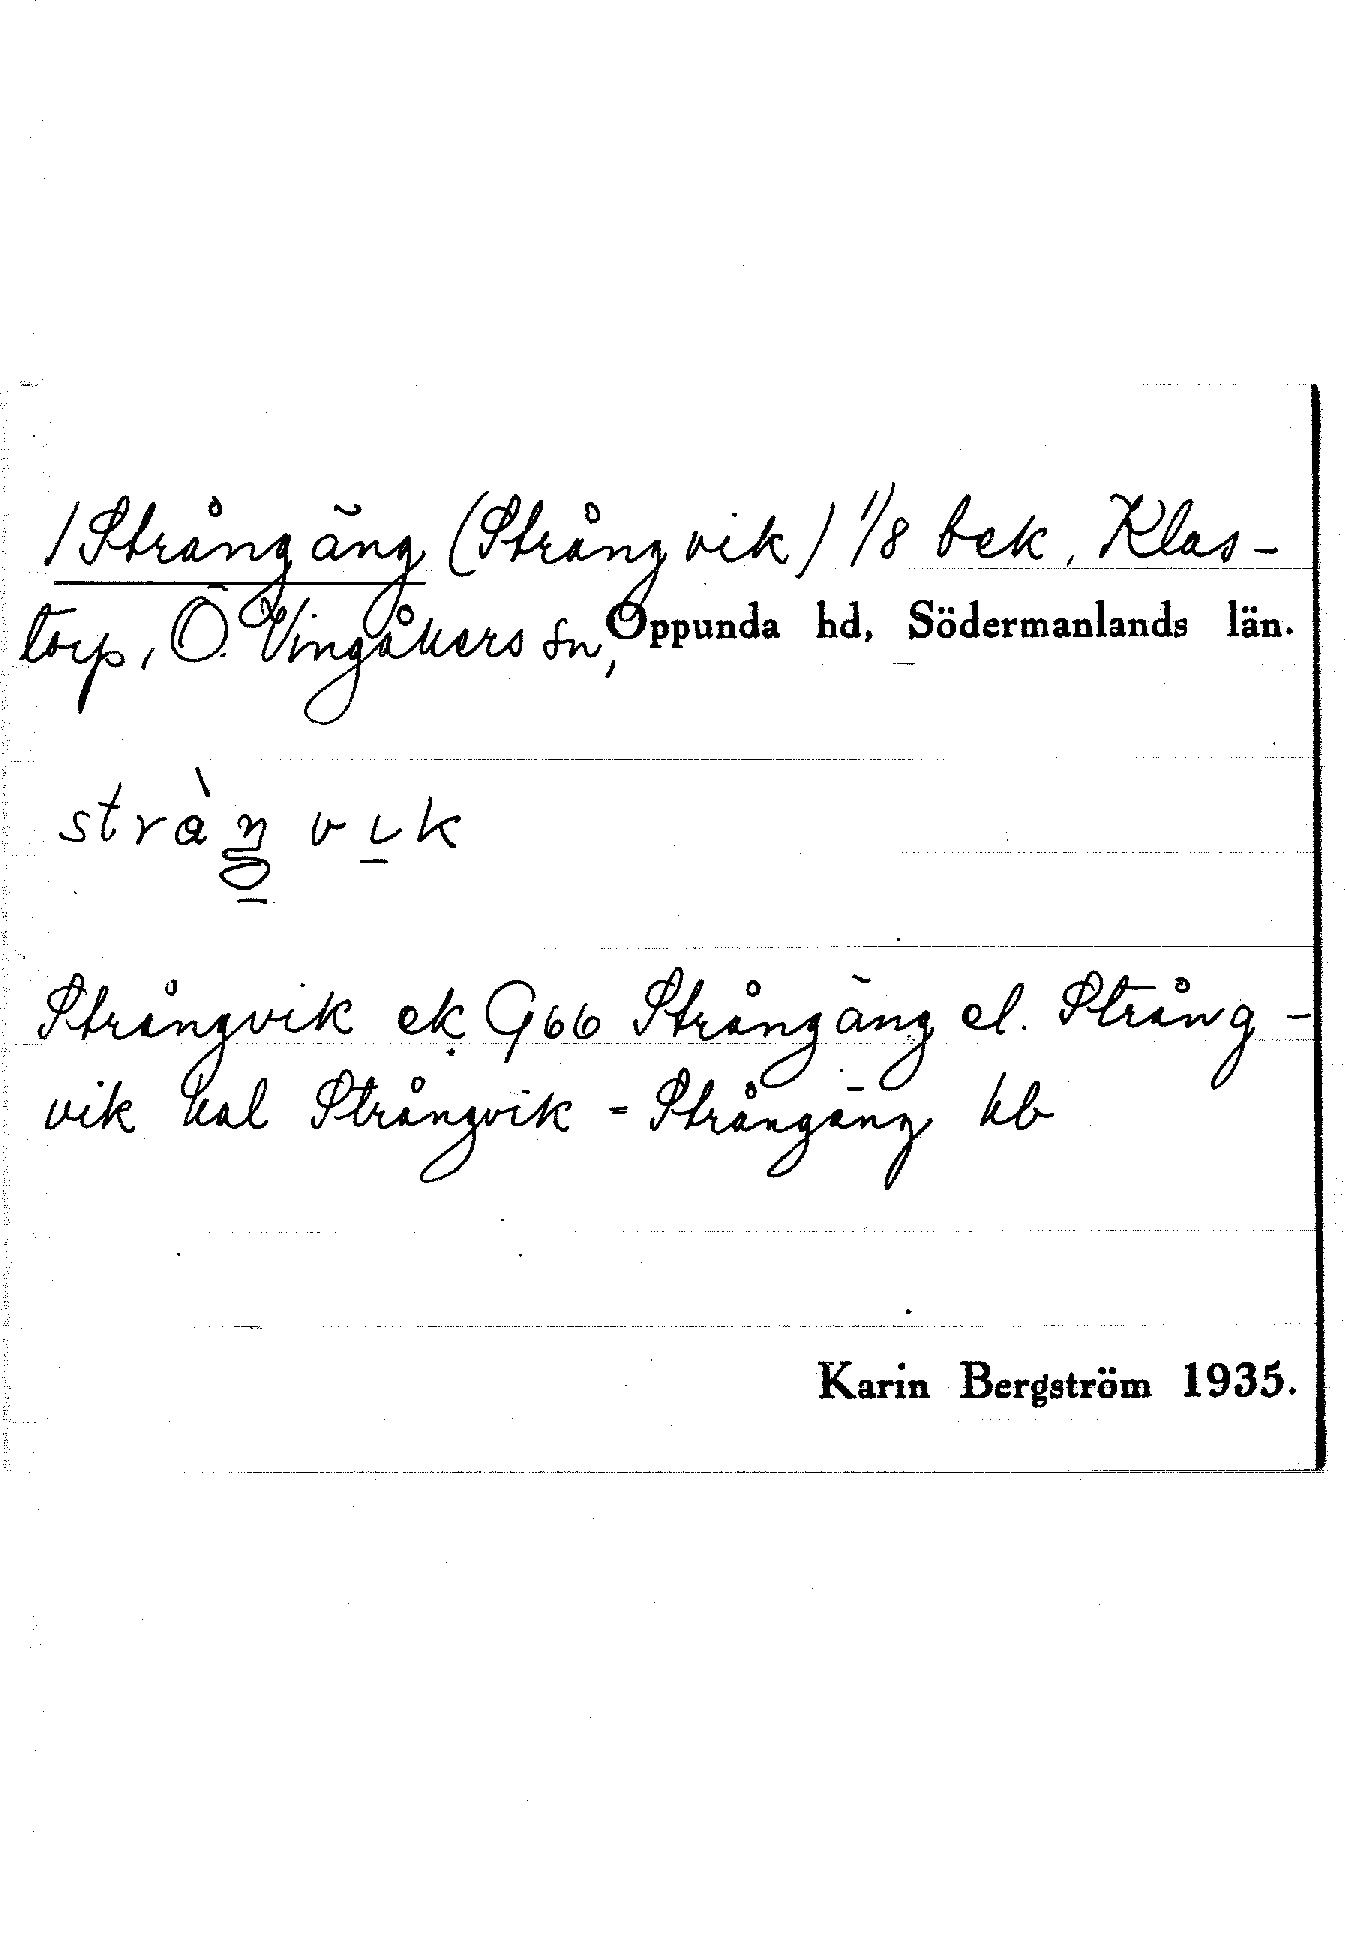 /Strångäng (Strångvik) 1/8 bek, Klas-
torp, Ö. Vingåkers sn, Oppunda hd, Södermanlands län.
vik
Strångvik ek G66 Strångäng el. Strång-
vik kal Strångvik - Strångäng kb
Karin Bergström 1935.